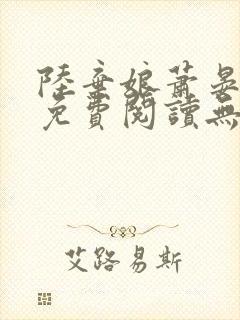 陸棄娘蕭晏
免費閱讀無
艾路易斯